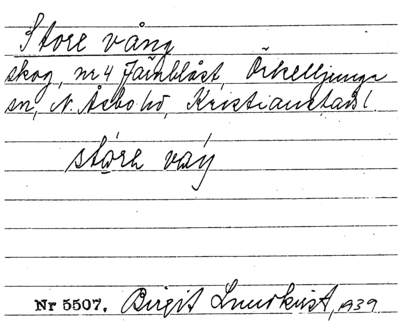 Store vång
skog, nr 4 Järnblåst, Örkelljunga
sn, N. Åsbo hd, Kristianstads l.
store våŋ
Nr 5507. Birgit Lundkvist, 1939.